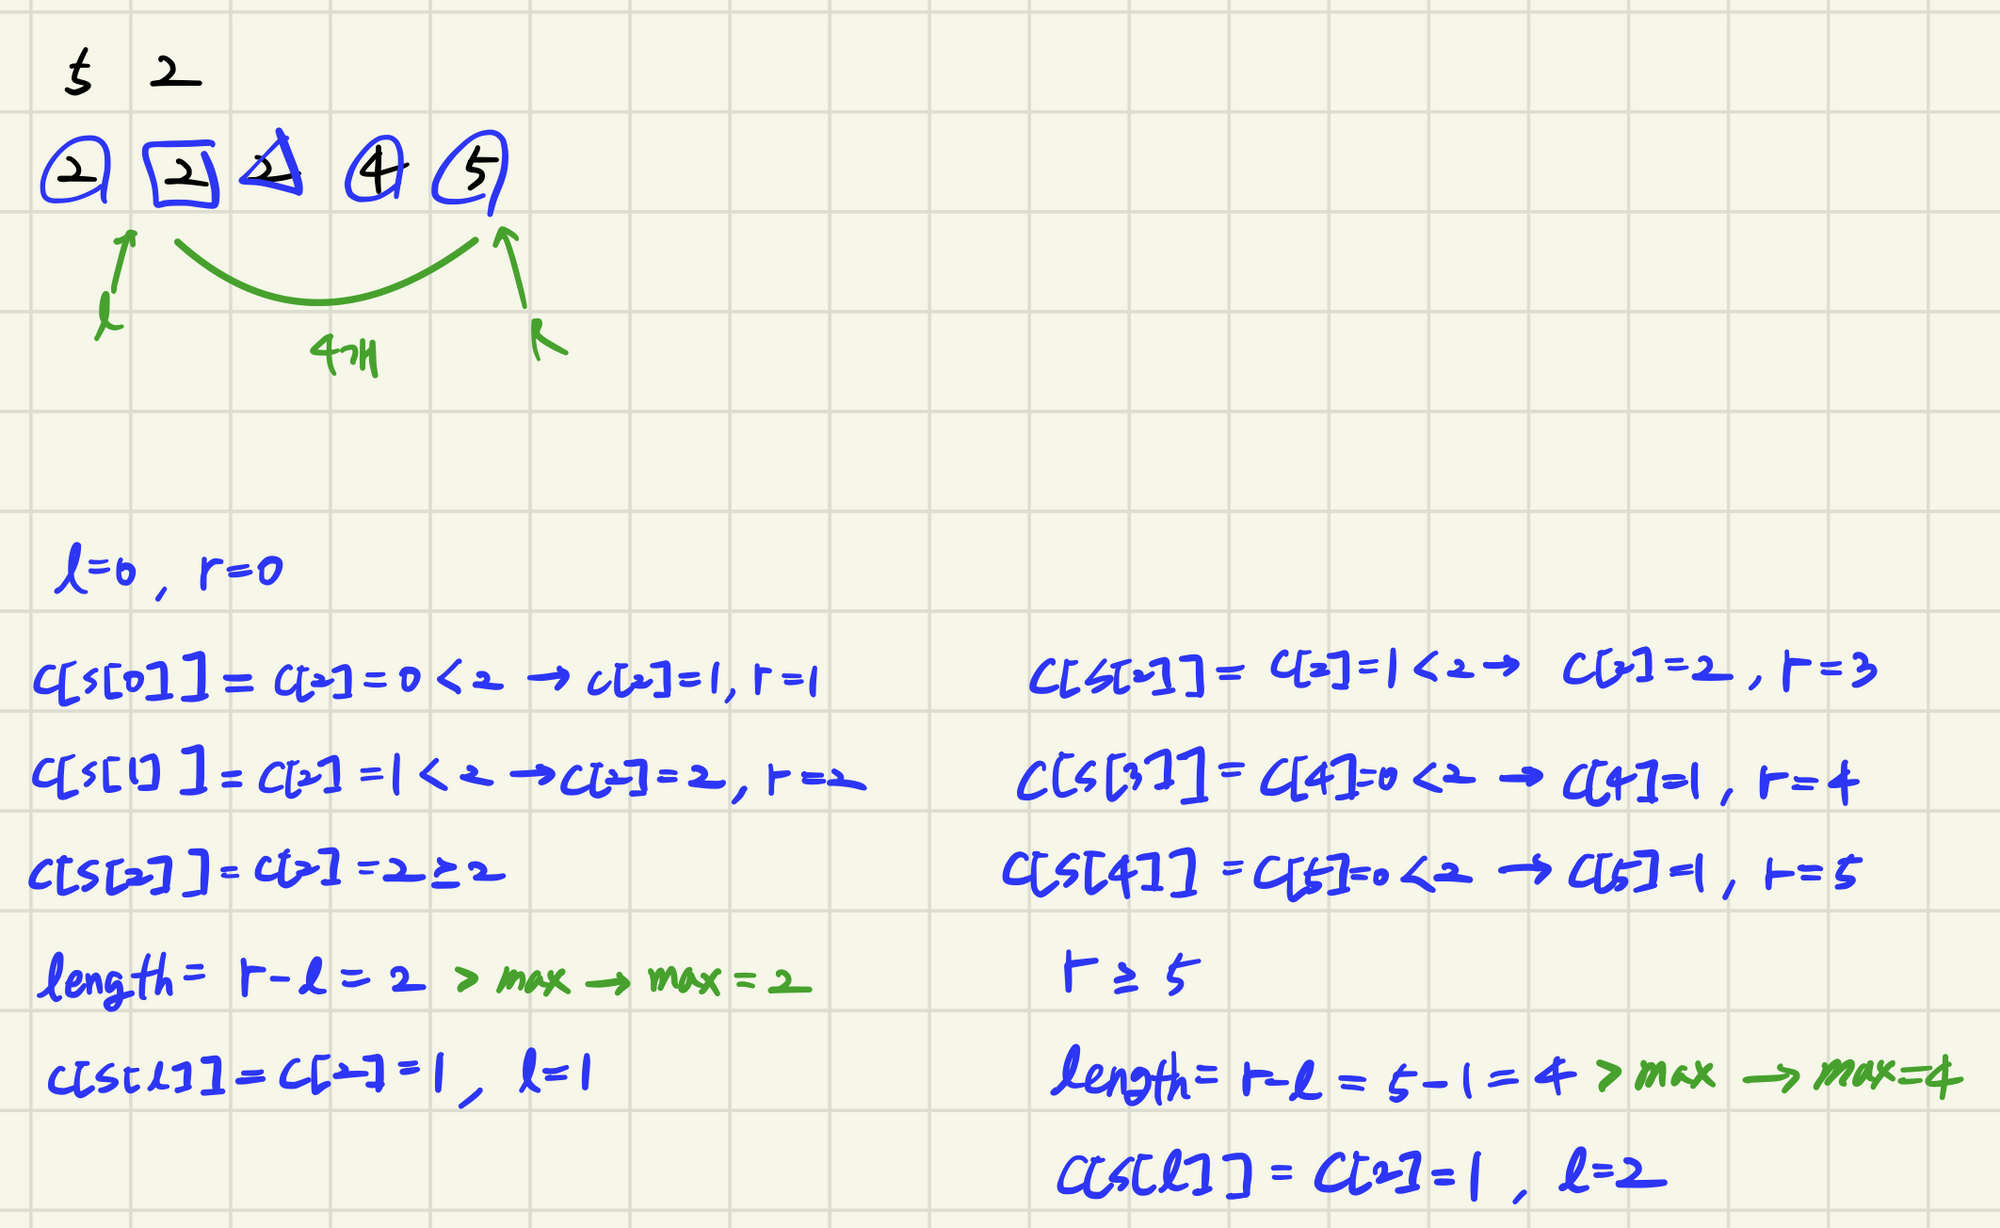 5 2
2 2 2 4 5
l r
4개
l=0, r=0
c[s[0]] = c[2] = 0 < 2 → c[2]=1, r=1
c[s[1]] = c[2] = 1 < 2 → c[2] = 2, r=2
c[s[2]] = c[2] = 2 ≥ 2
length = r - l = 2 > max → max = 2
c[s[l]] = c[2] = 1, l=1
c[s[2]] = c[2] = 1 < 2 → c[2] = 2, r=3
c[s[3]] = c[4]=0 < 2 → c[4]=1, r=4
c[s[4]] = c[5]=0 < 2 → c[5]=1, r=5
r ≥ 5
length = r-l = 5-1 = 4 > max → max=4
c[s[l]] = c[2] = 1, l=2